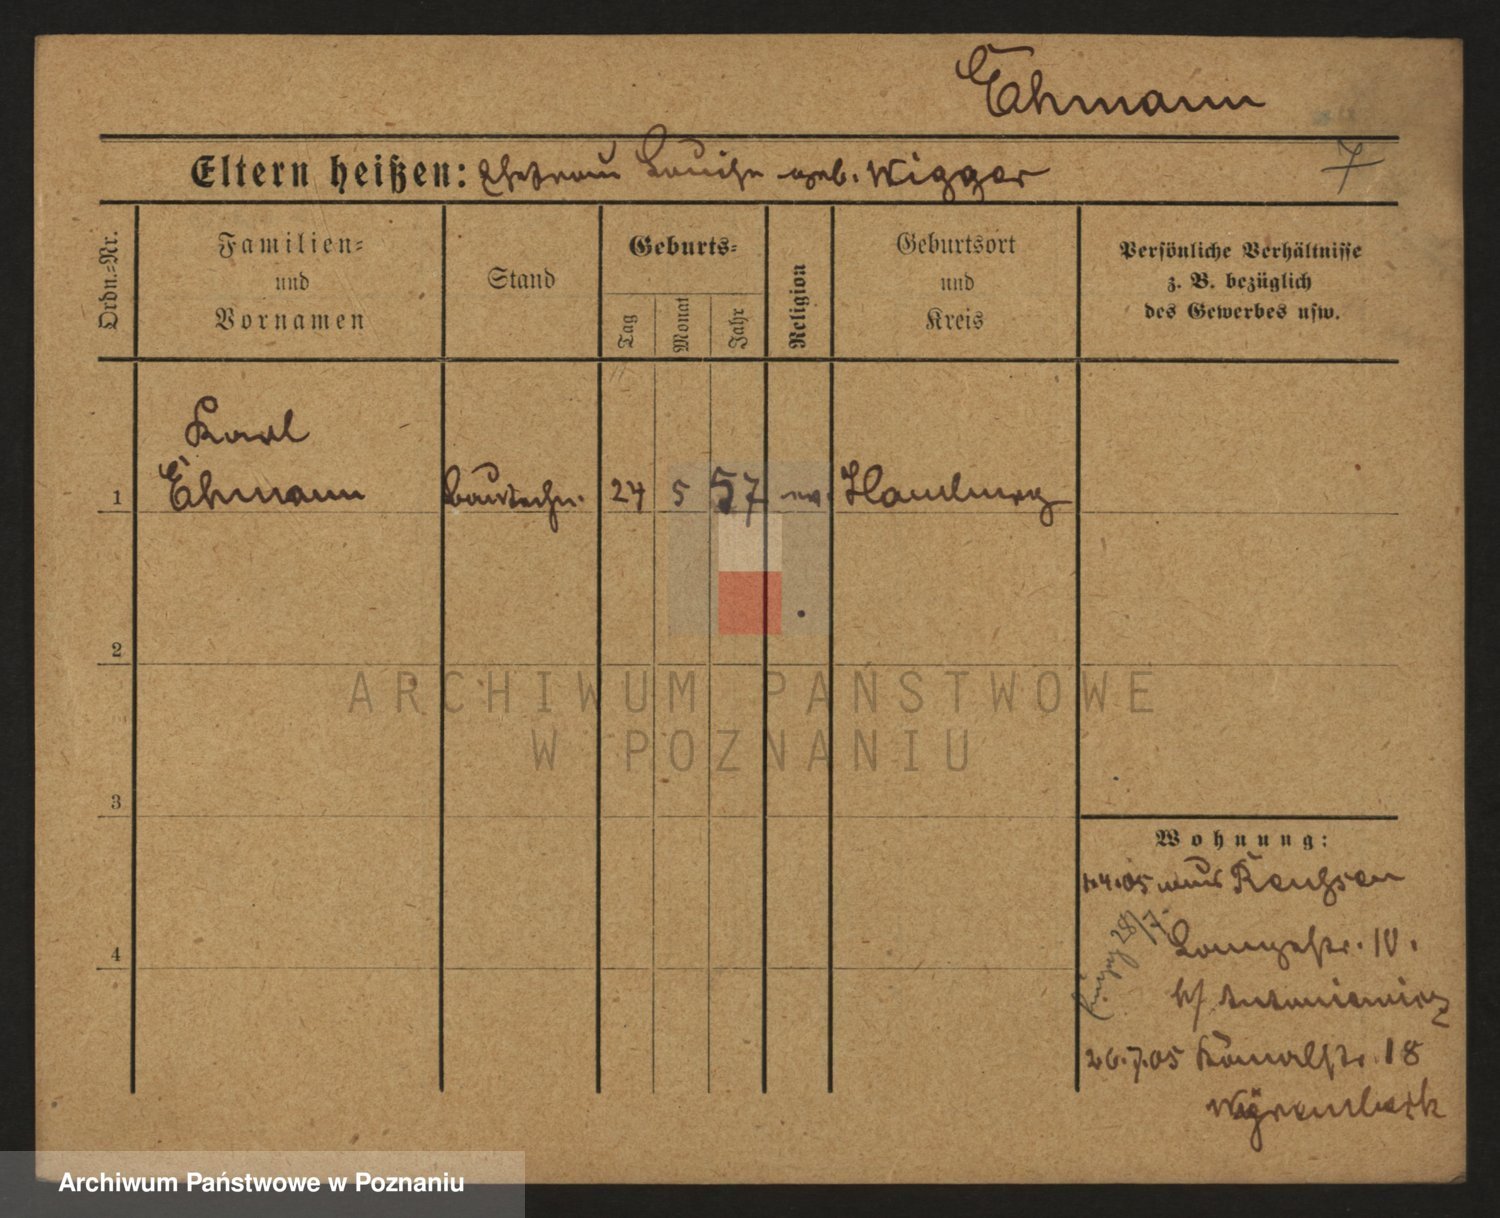 Ehmann
Eltern heißen: Ehefrau Louise geb. Wigger
7
Ordn.-Nr.
Familien-
und
Vornamen
Stand
Geburts-
Tag
Monat
Jahr
Religion
Geburtsort
und
Kreis
Persönliche Verhältnisse
z. B. bezüglich
des Gewerbes usw.
Karl
1 Ehmann Bautechn. 24 5 57 ev. Hamburg
2
ARCHIWUM PAŃSTWOWE
W POZNANIU
3
Wohnung:
1.4.05 aus
28/7.
Langestr. 10.
b/ Antoniewicz
4
26.7.05 Kanalstr. 18
Archiwum Państwowe w Poznaniu